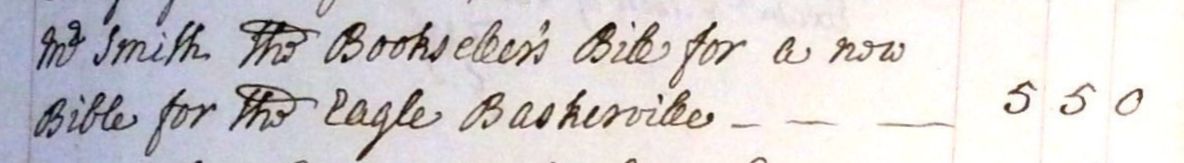 Mr Smith The Bookseller's Bill for a new
Bible for The Eagle Baskerville - - - 5 5 0